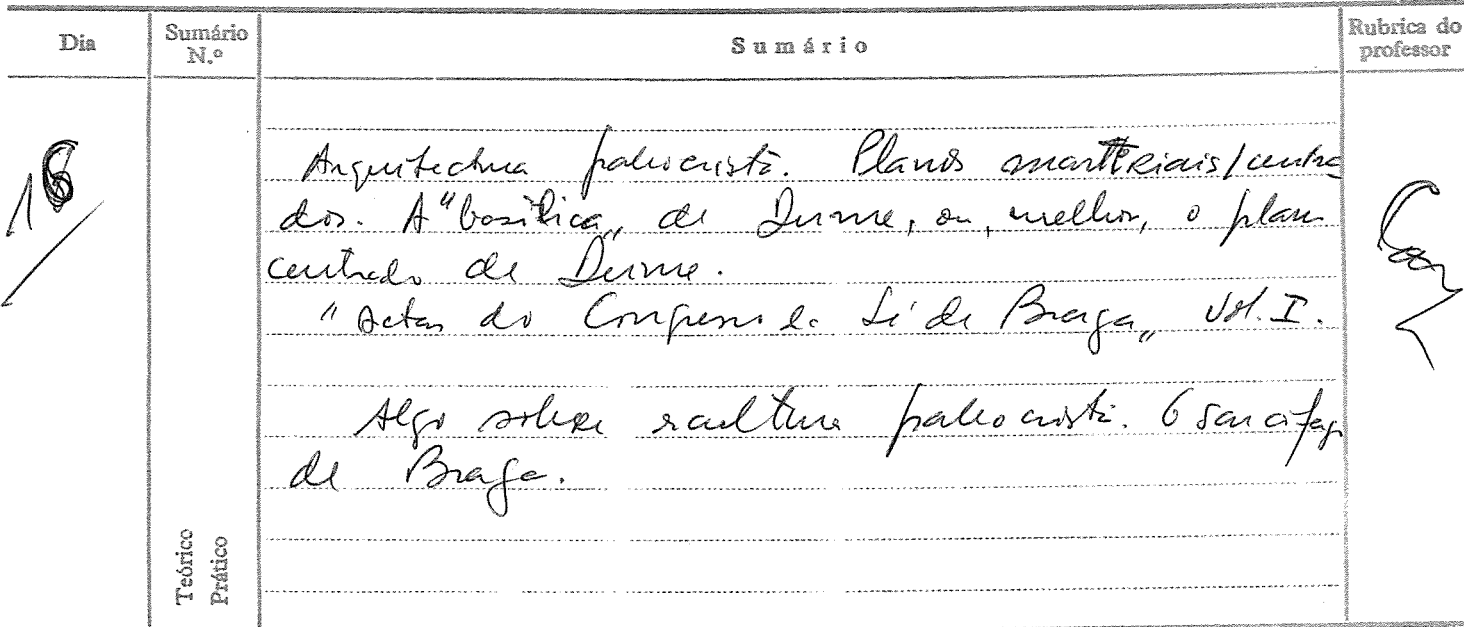 Dia
Sumário N.º
Sumário
Rubrica do professor
18
Arquitectura paleocristã. Planos martiriais/centra
dos. A "basílica" de Dume, ou, melhor, o plano
centrado de Dume.
"Actas do Congresso da Sé de Braga" Vol. I.
Algo sobre escultura paleocristã. O sarcófago
de Braga.
Teórico
Prático